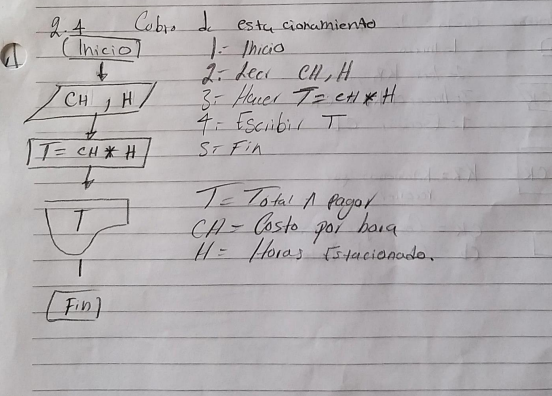 2.4 Cobro de estacionamiento
(Inicio)
1.- Inicio
2.- Leer CH, H
CH, H
3.- Hacer T = CH * H
4.- Escribir T
T = CH * H
5.- Fin
T
T = Total A pagar
CH = Costo por hora
H = Horas Estacionado.
(Fin)